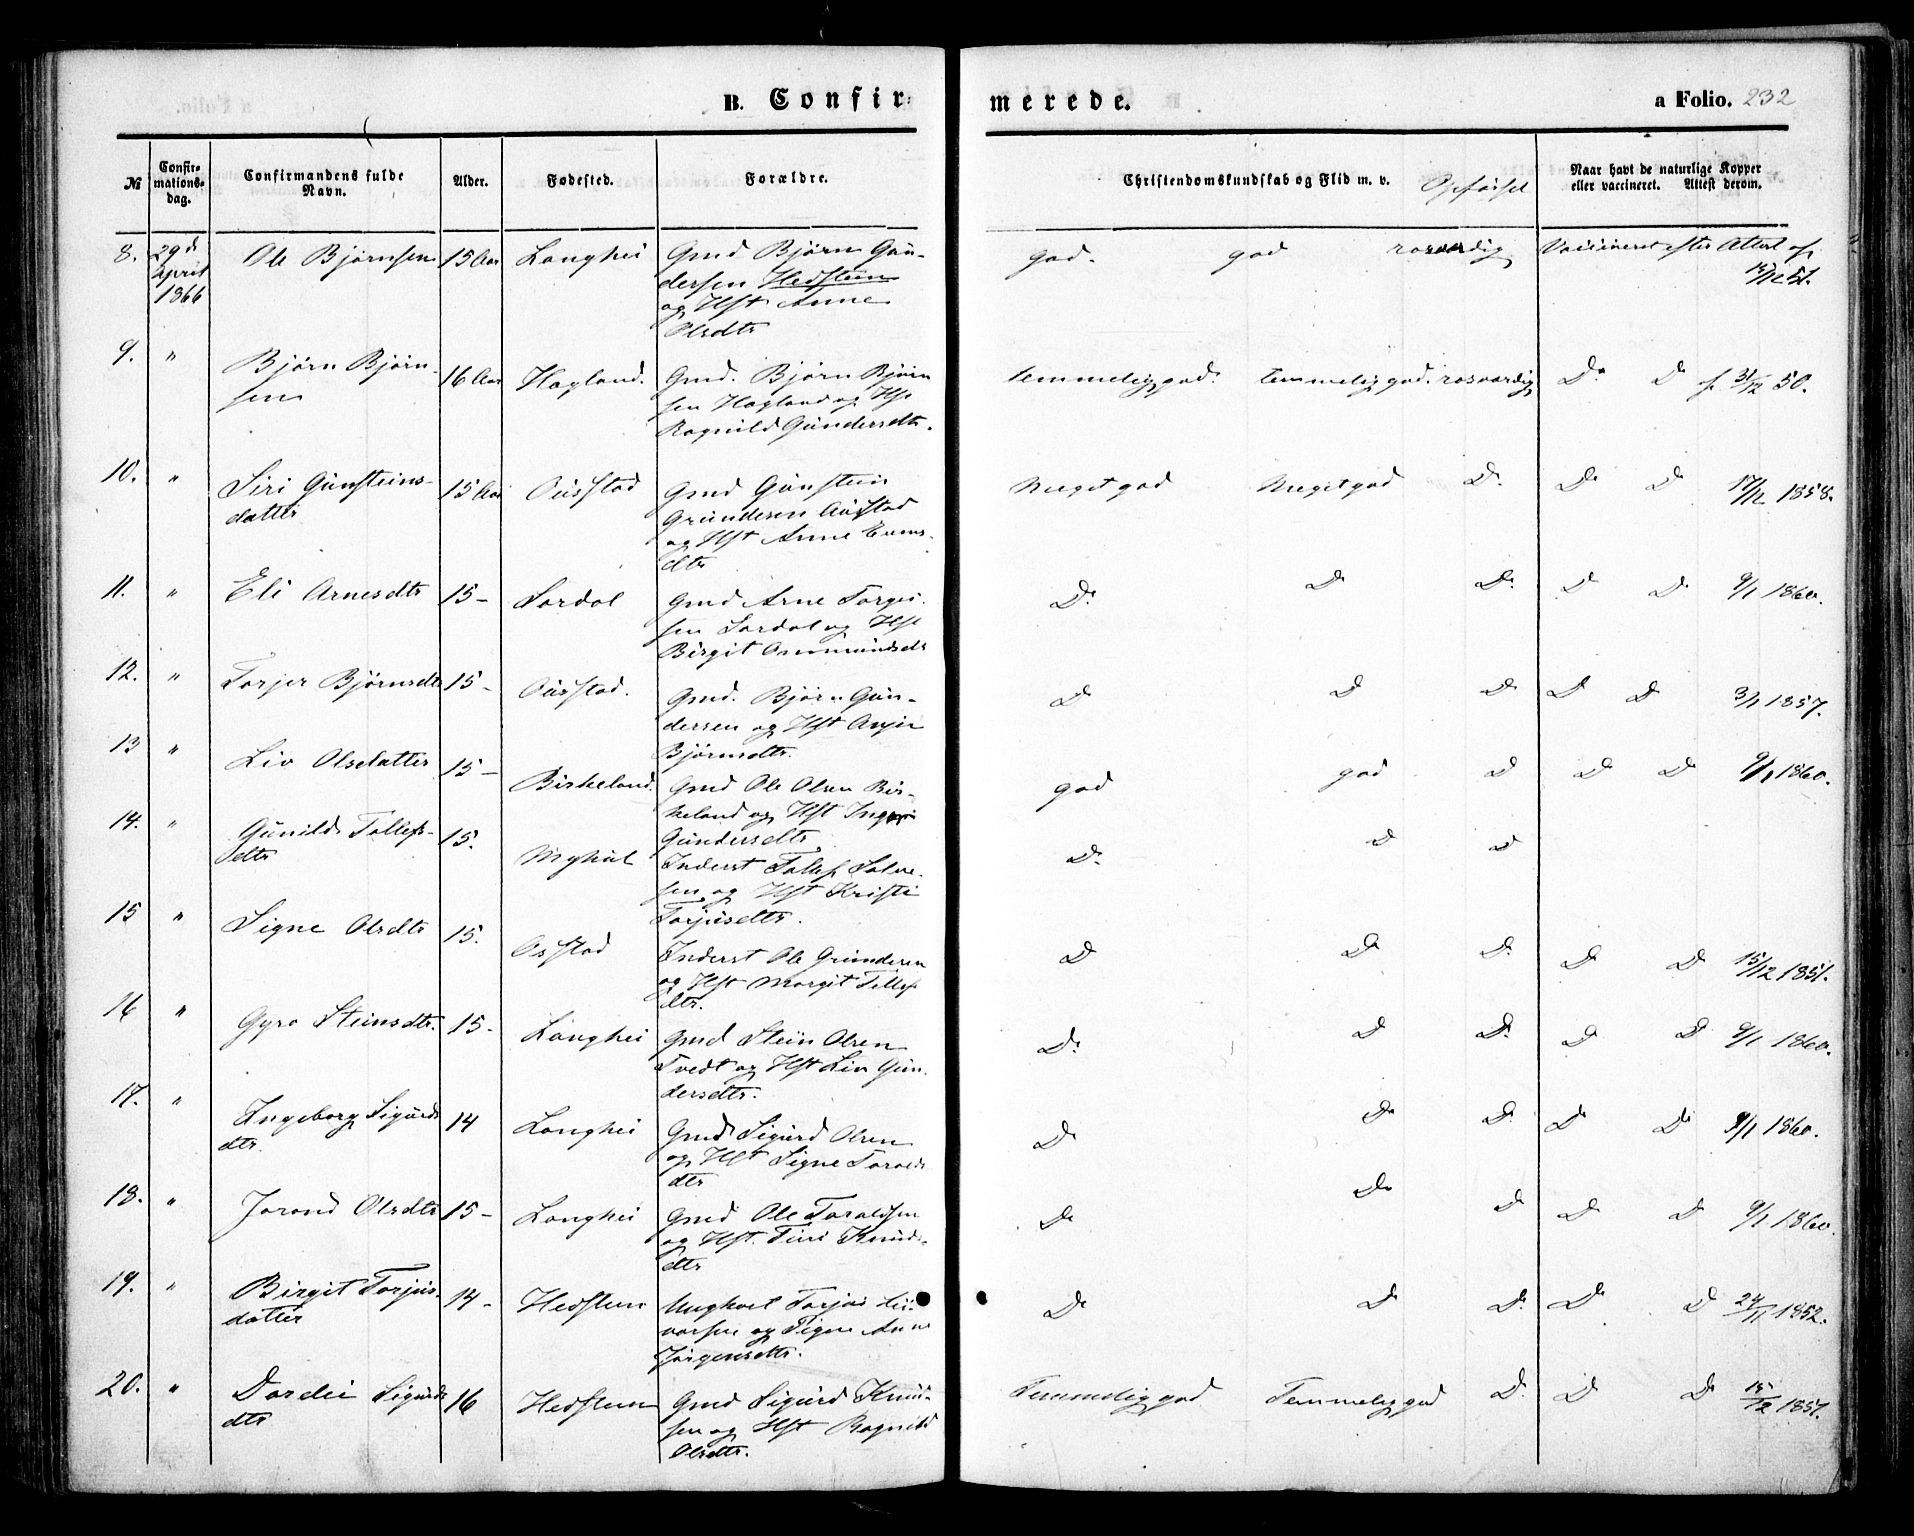 B. Confir-
merede.
a Folio. 232
№
Confir-
mations-
dag.
Confirmandens fulde
Navn.
Alder.
Fødested.
Forældre.
Christendomskundskab og Flid m. v.
Opførsel
Naar havt de naturlige Kopper
eller vaccineret. Attest derom.
8. 29d Ole Bjørnsen 15 Aar Langhei Gmd Bjørn Gun-
april dersen Hedstein
1866 og Hst Anne
Olsdtr
god. god rosværdig Vaccineret efter Attest af
15/12 51.
9. " Bjørn Bjørn-
sen 16 Aar Hagland. Gmd. Bjørn Bjørn
sen Hagland og Hst
Ragnild Gundersdtr.
temmelig god. temmelig god. rosværdig Do Do f. 31/12 50.
10. " Siri Gunsteins-
datter 15 Aar Ousstad Gmd Gunstein
Gundersen Ousstad
og Hst Anne
dtr
Meget god Meget god Do Do Do 17/12 1858.
11. " Eli Arnesdtr 15- Sordal Gmd Arne Torgei
sen Sordal og Hst
Birgit Ommundsdtr
Do. Do Do. Do Do 9/1 1860.
12. " Torjer Bjørnsdtr 15- Ousstad. Gmd. Bjørn Gun-
dersen og Hst
Bjørnsdtr.
Do Do Do Do Do 3/1 1857.
13 " Liv Olsdatter 15- Birkeland. Gmd Ole Olsen Bir-
keland og Hst
Gundersdtr
god god Do Do Do 9/1 1860.
14. " Gunild Tollefs-
dtr 15. Myhul Inderst Tollef Salve
sen og Hst Kristi
Torjusdtr.
Do. Do Do
15 " Signe Olsdtr 15. Osstad Inderst Ole Gundersen
og Hst Margit Tellef
dtr.
Do Do Do. Do Do 15/12 1851.
16 " Gyro Steinsdtr. 15- Langhei Gmd Stein Olsen
Tvedt og Hst Liv Gun-
dersdtr.
Do. Do Do. Do Do 9/1 1860.
17. " Ingeborg Sigurds
dtr. 14 Langhei Gmd Sigurd Olsen
og Hst Signe Toralds
dtr
Do Do Do Do Do 9/1 1860.
18. " Jorond Olsdtr 15- Langhei Gmd Ole Toraldsen
og Hst. Siri Knuds-
dtr
Do Do Do Do Do 9/1 1860.
19. " Birgit Torjus-
datter 14- Hedstein Torjus
og Pigen Anne
Jørgensdtr.
Do Do Do. Do Do 24/11 1852.
20. " Dordei Sigurds
dtr 16 Hedstein Gmd Sigurd Knud-
sen og Hst Ragnild
Olsdtr.
Temmelig god Temmelig god Do. Do Do 15/12 1851.